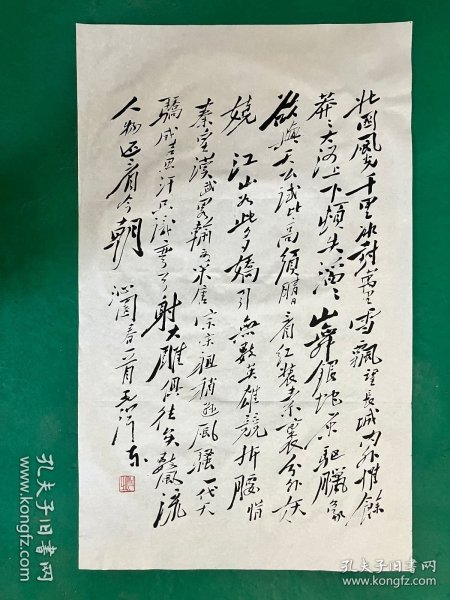 北国风光千里冰封万里雪飘望长城内外惟馀
莽々大河上下顿失滔々山舞银蛇原驰腊象
欲与天公试比高须晴看红装素裹分外妖
娆 江山如此多娇引无数英雄竞折腰惜
秦皇汉武略输文采唐宗宋祖稍逊风骚一代天
骄成吉思汗只识弯弓射大雕俱往矣数风流
人物还看今朝 沁园春一首毛泽东
孔夫子旧书网
孔夫子旧书网
www.kongfz.com
孔夫子旧书网
www.kongfz.com